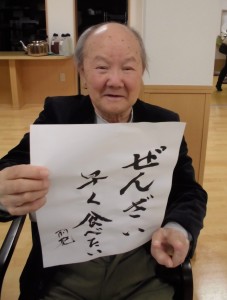 ぜんざい
早く食べたい